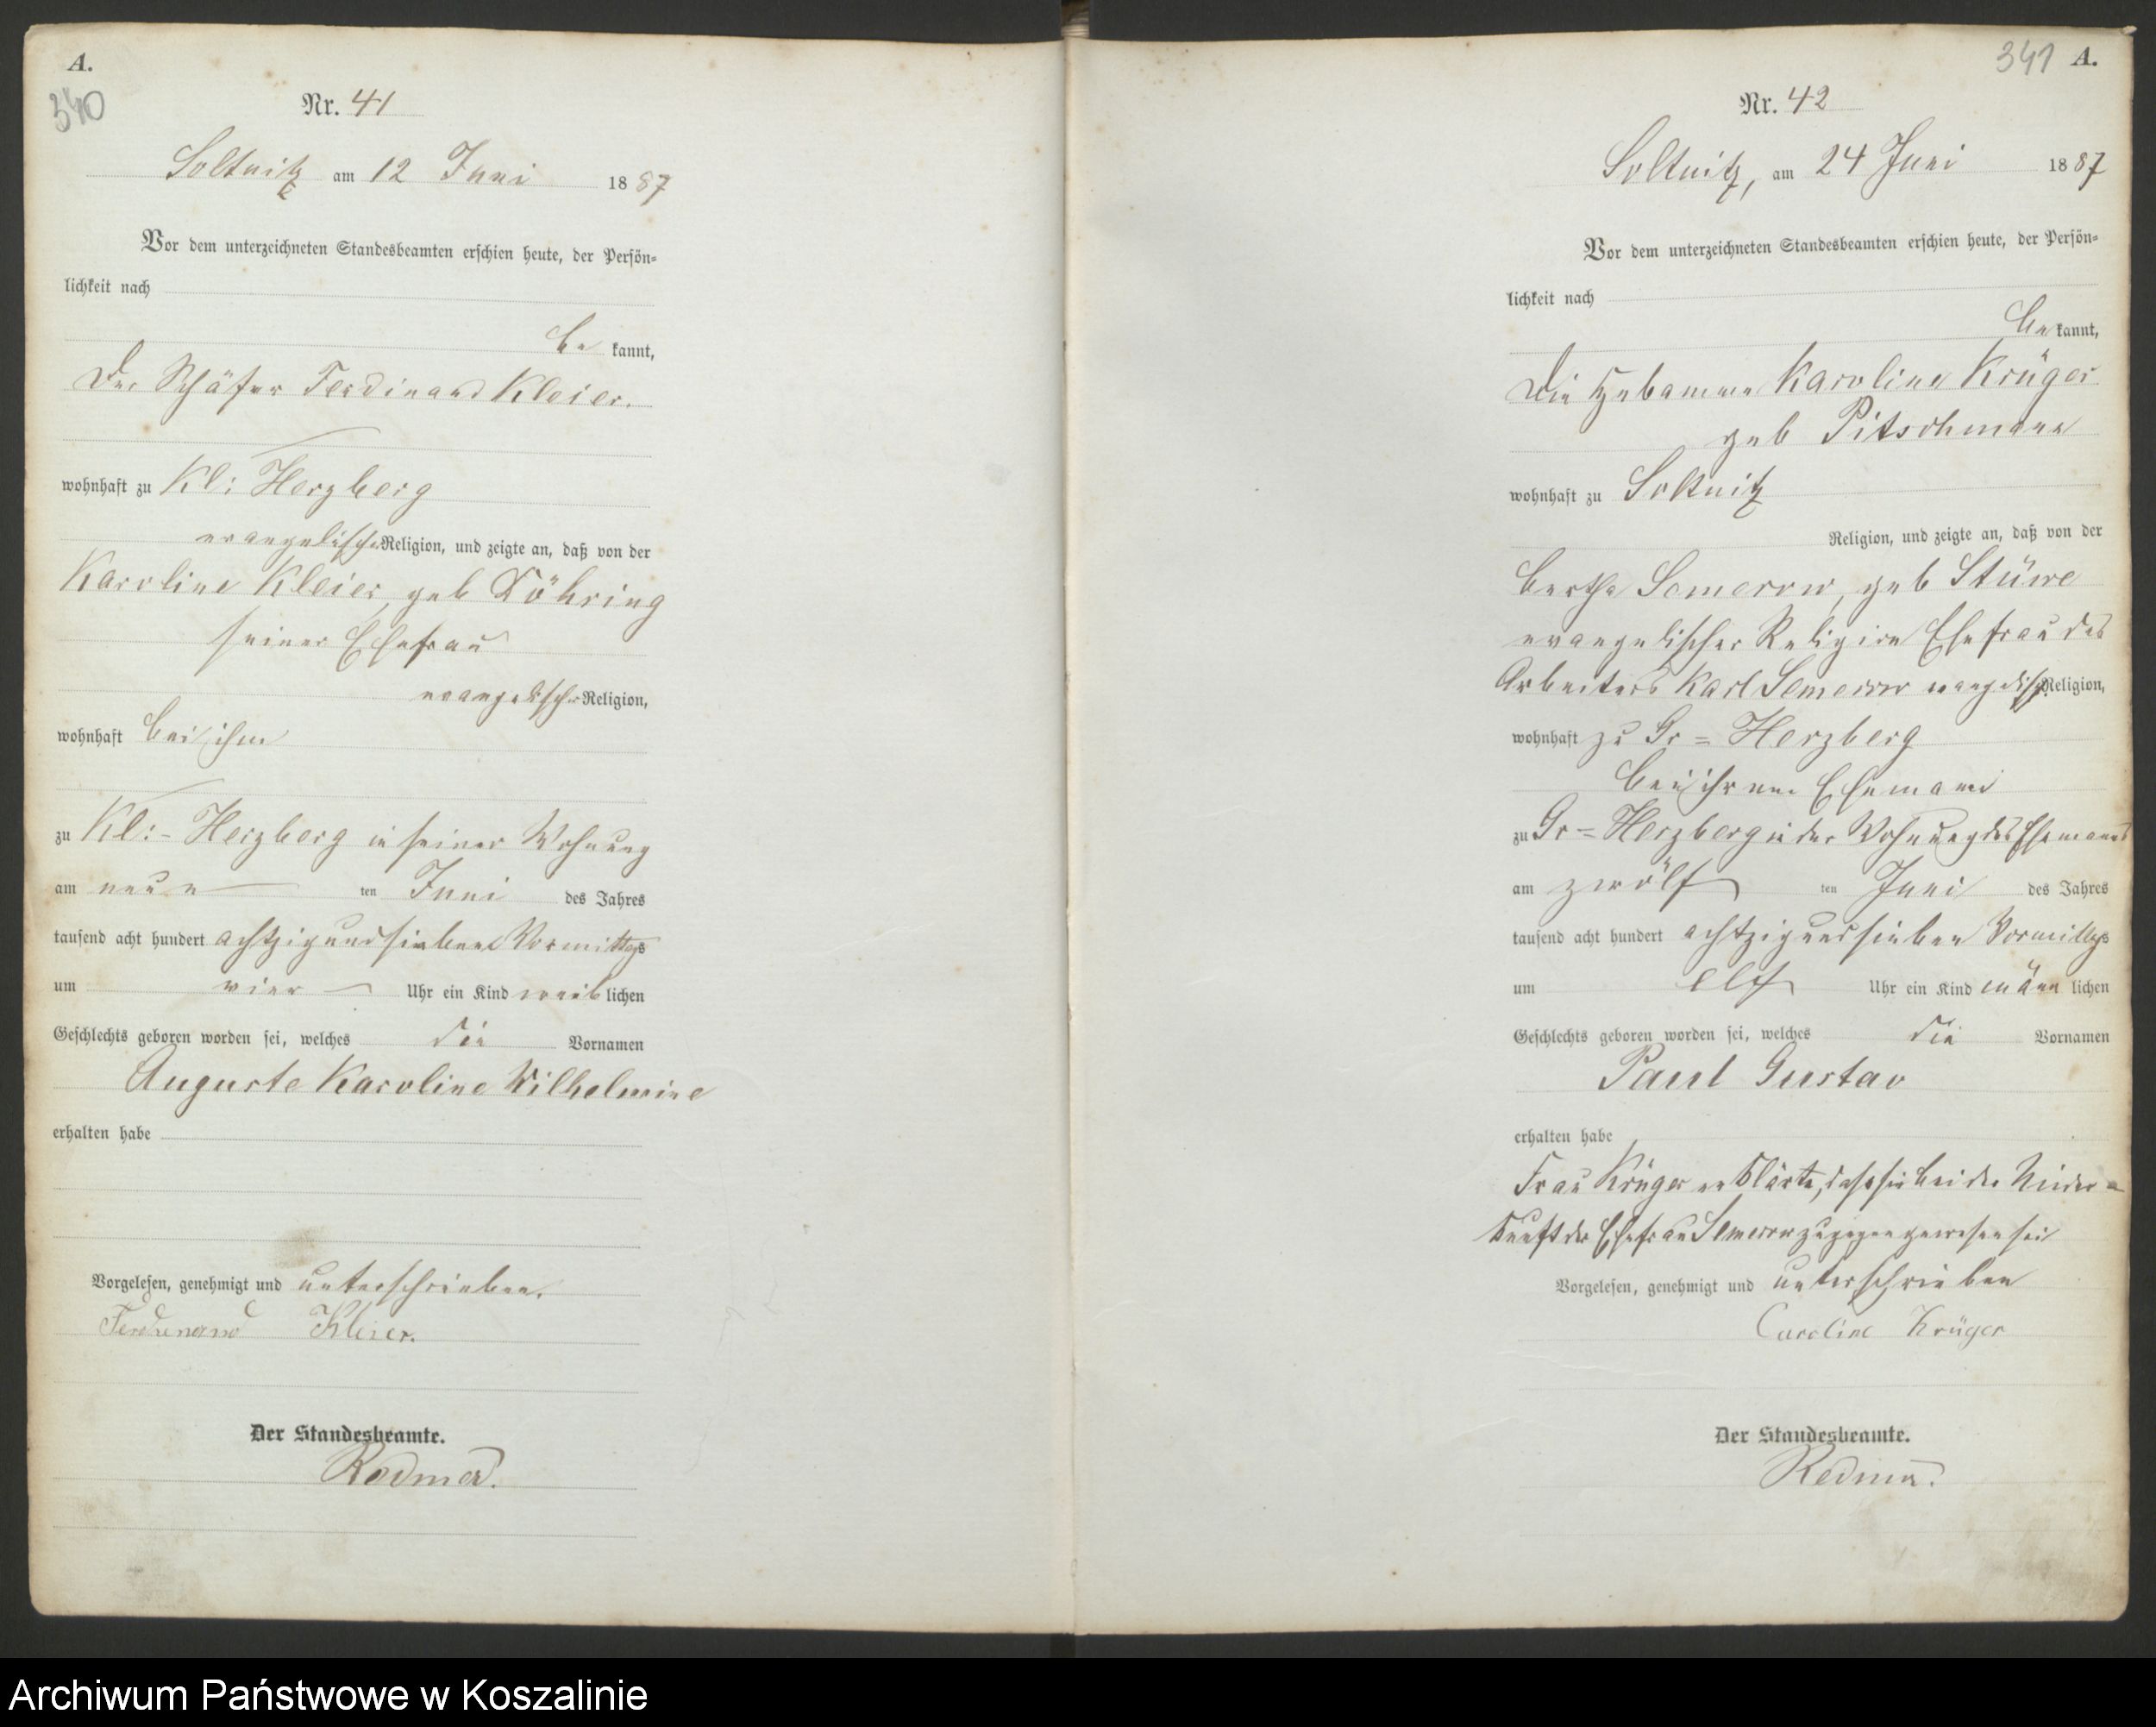 A.
340
Nr. 41
Soltnitz am 12 Juni 1887
Vor dem unterzeichneten Standesbeamten erschien heute, der Persön-
lichkeit nach
be kannt,
Der Schäfer Ferdinand Kleier.
wohnhaft zu Kl: Herzberg
evangelischer Religion, und zeigte an, daß von der
Karoline Kleier, geb Döhring
seiner Ehefrau
evangelischer Religion,
wohnhaft bei ihm
zu Kl:- Herzberg in seiner Wohnung
am neun ten Juni des Jahres
tausend acht hundert achtzigundsieben Vormittags
um vier Uhr ein Kind weiblichen
Geschlechts geboren worden sei, welches die Vornamen
Auguste Karoline Wilhelmine
erhalten habe
Vorgelesen, genehmigt und unterschrieben.
Ferdinand Kleier.
Der Standesbeamte.
341 A.
Nr. 42
Soltnitz, am 24 Juni 1887
Vor dem unterzeichneten Standesbeamten erschien heute, der Persön-
lichkeit nach
be kannt,
Die Hebamme Karoline Krüger
geb Pitschmann
wohnhaft zu Soltnitz
Religion, und zeigte an, daß von der
Bertha Semerow, geb Stüwe
evangelischer Religion Ehefrau des
Arbeiters Karl Semerow evangelisch Religion,
wohnhaft zu Gr = Herzberg
bei ihrem Ehemann
zu Gr = Herzberg in der Wohnung des Ehemanns
am zwölf ten Juni des Jahres
tausend acht hundert achtzigundsieben Vormittags
um elf Uhr ein Kind männ lichen
Geschlechts geboren worden sei, welches die Vornamen
Paul Gustav
erhalten habe
Frau Krüger erklärte, daß sie bei der Nieder=
kunft der Ehefrau Semerow zugegen gewesen sei
Vorgelesen, genehmigt und unterschrieben
Caroline Krüger
Der Standesbeamte.
Archiwum Państwowe w Koszalinie